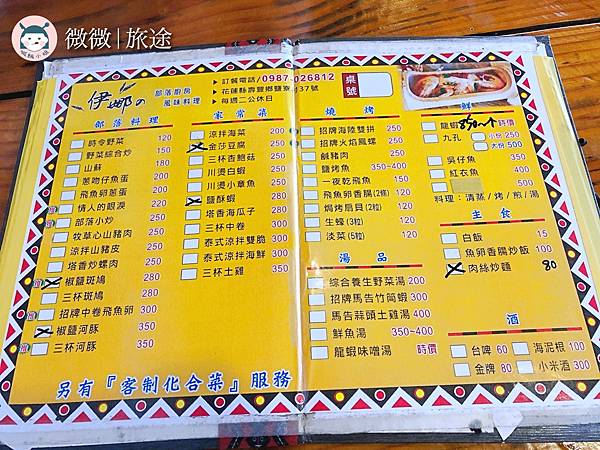 微微|旅途
伊娜の
部落廚房
風味料理
訂餐電話/0987-026812
花蓮縣壽豐鄉鹽寮
37號
每週二公休日
桌號
部落料理
時令野菜 120
野菜綜合炒 150
山蘇 180
蔥吻仔魚蛋 200
飛魚卵蔥蛋 200
情人的眼淚 220
部落小炒 250
牧草心山豬肉 250
涼拌山豬皮 250
塔香炒螺肉 250
椒鹽斑鳩 280
三杯斑鳩 280
招牌中卷飛魚卵 300
椒鹽河豚 350
三杯河豚 350
家常菜
涼拌海菜 200
金莎豆腐 250
三杯杏鮑菇 250
川燙白蝦 250
川燙小章魚 250
鹽酥蝦 250
塔香海瓜子 280
三杯中卷 300
泰式涼拌雙脆 300
泰式涼拌海鮮 300
三杯土雞 350
燒烤
招牌海陸雙拼 250
招牌火焰螺 250
鹹豬肉 250
鹽烤魚 350~400
一夜乾飛魚 150
飛魚卵香腸(2條) 120
焗烤扇貝(2粒) 120
生蠔(3粒) 120
淡菜(5粒) 120
湯品
綜合養生野菜湯 200
招牌馬告竹筒蝦 300
馬告蒜頭土雞湯 400
鮮魚湯 350~400
龍蝦味噌湯 時價
龍蝦 時價
九孔 小份 250
大份 500
吳仔魚 350
紅衣魚 400
500
料理：清蒸/烤/煎/湯
主食
白飯 15
魚卵香腸炒飯 100
肉絲炒麵 80
酒
台啤 60
海泥根 100
金牌 80
小米酒 300
另有『客制化合菜』服務